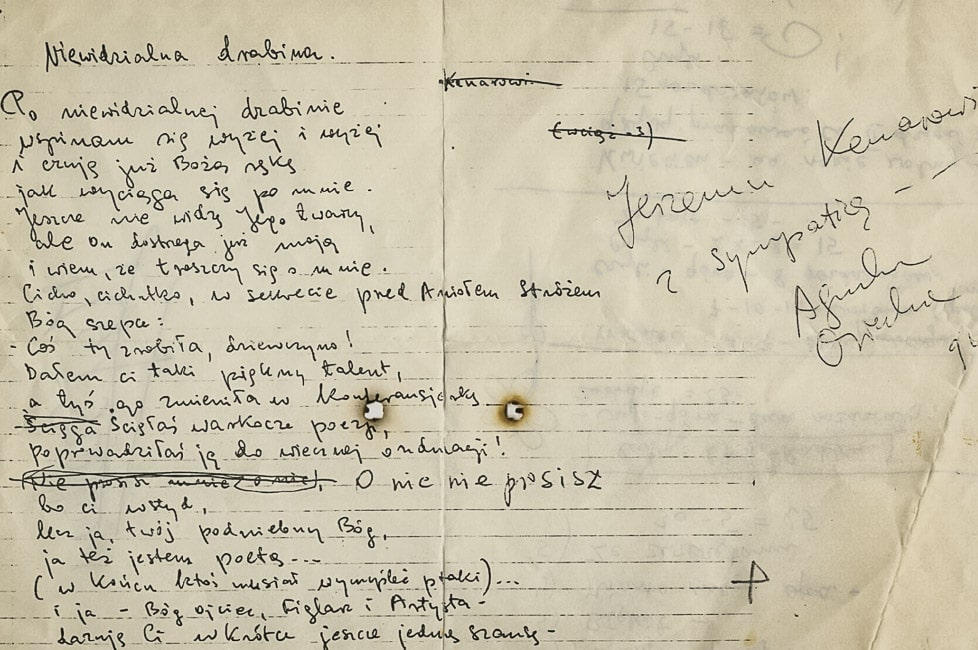 Niewidzialna drabina.
Kenarowi
(wciąż
Po niewidzialnej drabinie
wspinam się wyżej i wyżej
i czuję już Bożą rękę
jak wyciąga się po mnie.
Jeszcze nie widzę Jego twarzy,
ale On dostrega już moją
i wiem, że troszczy się o mnie.
Cicho, cichutko, w sekrecie przed Aniołem Stróżem
Bóg szepce:
- Coś ty zrobiła, dziewczyno!
Dałem ci taki piękny talent,
a tyś go zmieniła w konferansjerkę
Ścięga Ścięłaś warkocze poezji,
poprowadziłaś ją do wiecznej ondulacji!
Nie prosisz mnie o nic, O nic nie prosisz
bo ci wstyd,
lecz ja, twój podniebny Bóg,
ja też jestem poetą...
(w końcu ktoś musiał wymyśleć ptaki)...
i ja - Bóg ojciec, Figlarz i Artysta -
daruję Ci wkrótce jeszcze jedną szansę -
Jeremiu Kenarowi
z sympatią --
Agnieszka
Osiecka